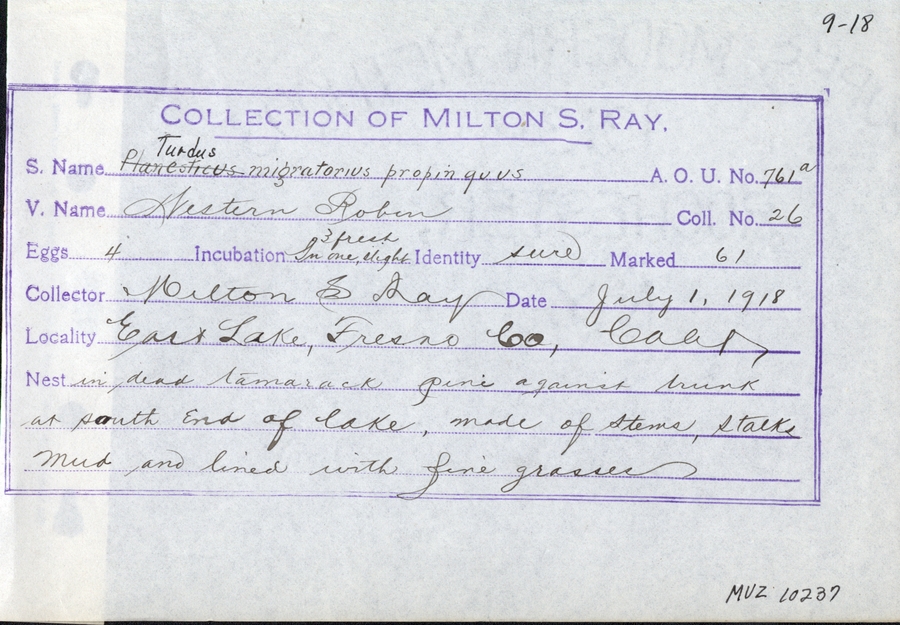 9-18
COLLECTION OF MILTON S. RAY.
Turdus
S. Name Planesticus migratorius propinquus A. O. U. No. 761a
V. Name Western Robin Coll. No. 26
3 fresh
Eggs 4 Incubation In one, slight Identity sure Marked 61
Collector Milton S Ray Date July 1, 1918
Locality East Lake, Fresno Co, Calif
Nest in dead tamarack pine against trunk
at south end of lake, made of stems, stalks
mud and lined with fine grasses
MVZ 10237